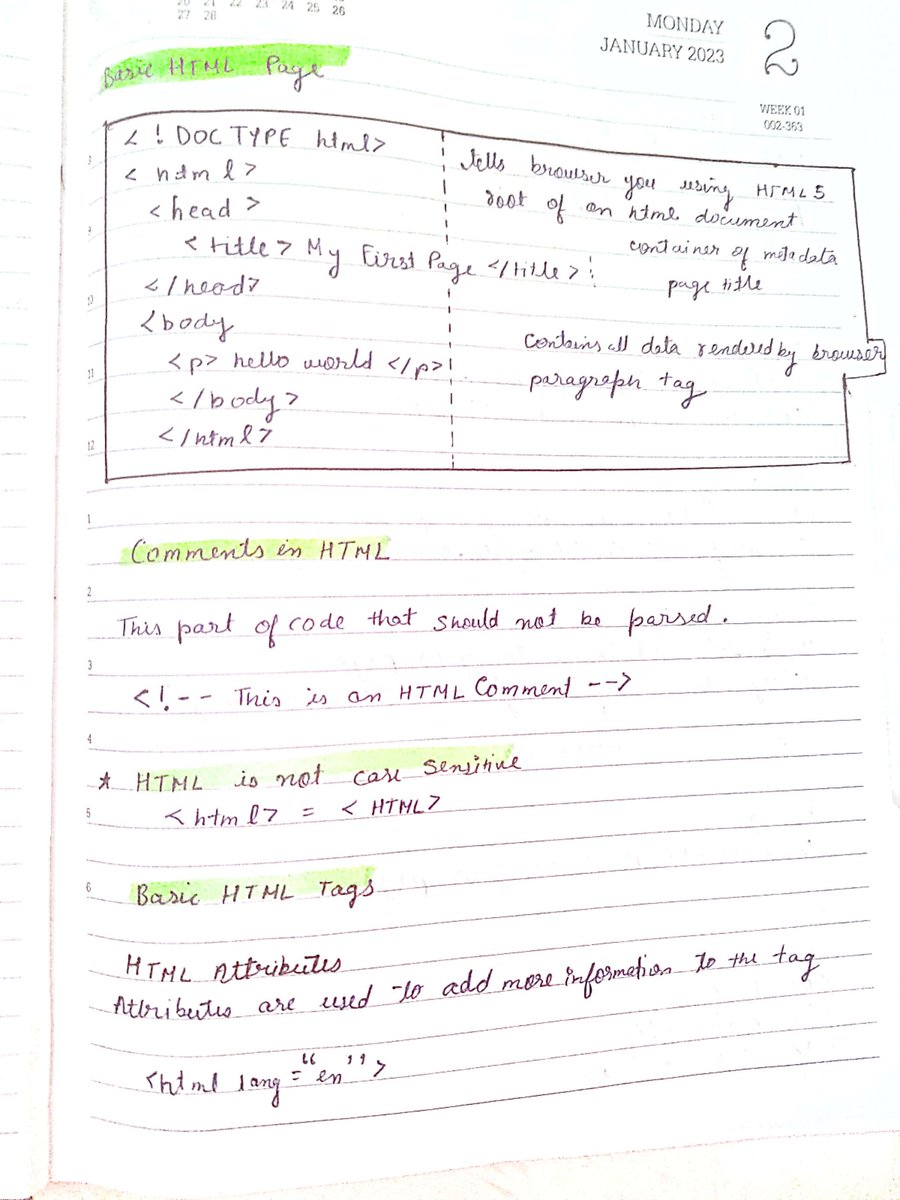 20 21 22 23 24 25 26
27 28
MONDAY
JANUARY 2023
2
WEEK 01
002-363
Basic HTML Page
< ! DOCTYPE html> tells browser you using HTML5
< html> root of an html document
<head > container of metadata
<title> My First Page </title> page title
</head>
<body Contains all data rendered by browser
<p> hello world </p> paragraph tag
</body>
</html>
9
10
11
12
1
Comments in HTML
2
This part of code that should not be parsed.
3
<!-- This is an HTML Comment -->
4
* HTML is not case sensitive
5 <html> = < HTML>
6 Basic HTML Tags
HTML Attributes
Attributes are used to add more information to the tag
<html lang = “en”>